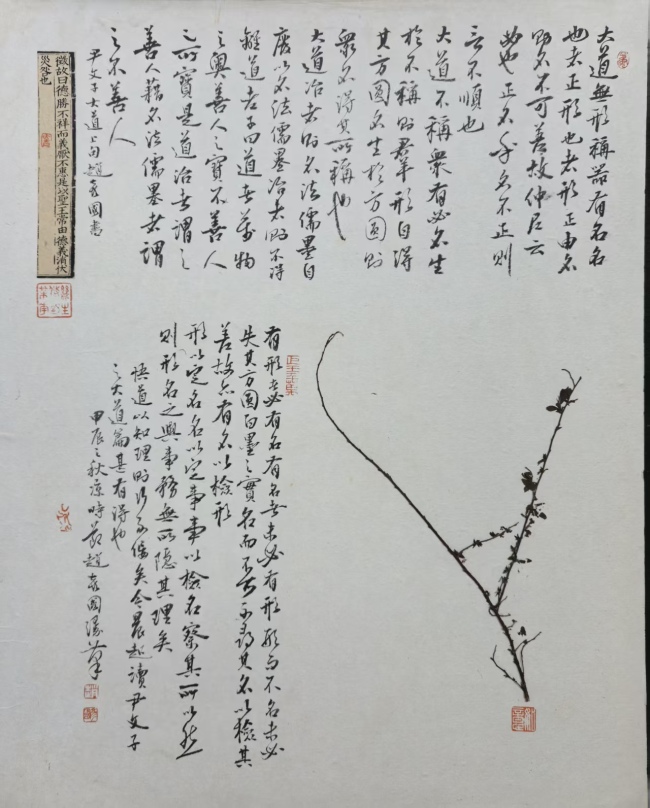 大道無形稱器有名名
也者正形也者形正由名
則名不可差故仲尼云
必也正名乎名不正則
言不順也
大道不稱眾有必名生
於不稱則群形自得
其方圓名生於方圓則
眾名得其所稱也
大道治者則名法儒墨自
廢以名法儒墨治者則不得
離道老子曰道者萬物
之奧善人之寶不善人
之所寶是道治者謂之
善人藉名法儒墨者謂
之不善人
尹文子大道上句趙 國書
徵故曰德勝不祥而義厭不惠是以聖王常由德義消伏
災咎也
有形者必有名有名者未必有形形而不名未必
失其方圓白黑之實名而不可不尋其名以檢其
差故亦有名以檢形
形以定名名以定事事以檢名察其所以然
則形名之與事物無所隱其理矣
悟道以知理則 矣今晨起讀尹文子
之大道篇甚有得也
甲辰之秋涼時節趙 國 筆